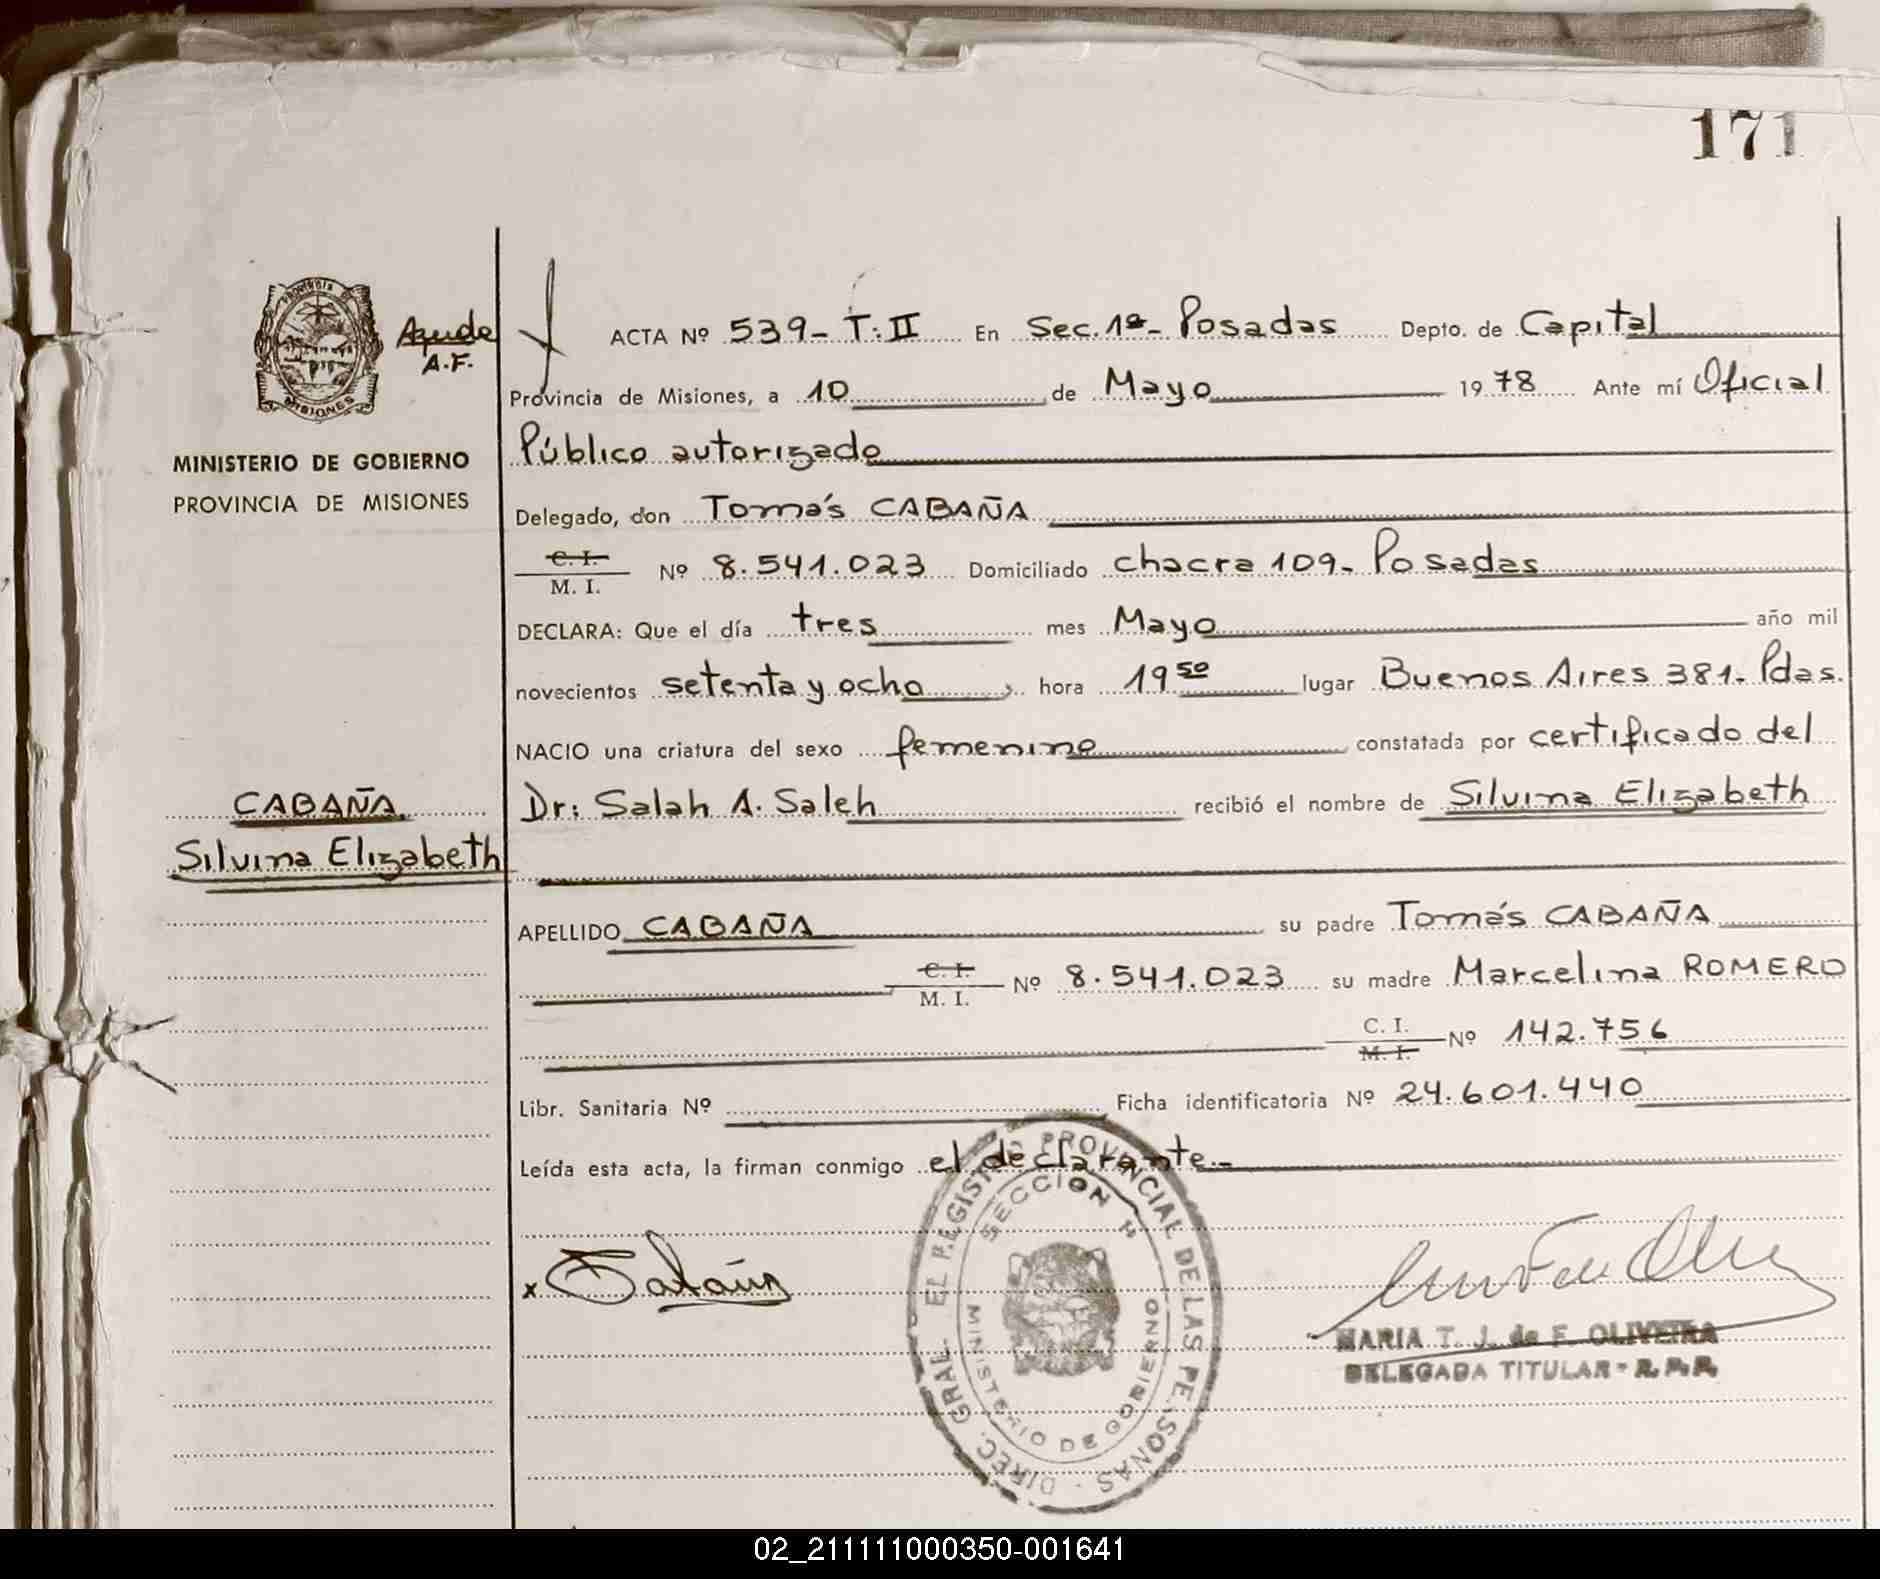 171
PROVINCIA DE
MISIONES
Ayude
A.F.
MINISTERIO DE GOBIERNO
PROVINCIA DE MISIONES
ACTA Nº 539- T: II En Sec. 1ª- Posadas Depto. de Capital
Provincia de Misiones, a 10 de Mayo 1978 Ante mí Oficial
Público autorizado
Delegado, don Tomás CABAÑA
C. I.
M. I. Nº 8.541.023 Domiciliado chacra 109- Posadas
DECLARA: Que el día tres mes Mayo año mil
novecientos setenta y ocho hora 19 50 lugar Buenos Aires 381- Pdas.
NACIO una criatura del sexo femenino constatada por certificado del
Dr: Salah A. Saleh recibió el nombre de Silvina Elizabeth
CABAÑA
Silvina Elizabeth
APELLIDO CABAÑA su padre Tomás CABAÑA
C. I.
M. I. Nº 8.541.023 su madre Marcelina ROMERO
C. I.
M. I. Nº 142.756
Libr. Sanitaria Nº Ficha identificatoria Nº 24.601.440
Leída esta acta, la firman conmigo el declarante.-
x
DIREC. GRAL. EL REGIST. PROVINCIAL DE LAS PERSONAS
SECCION 1ª
MINISTERIO DE GOBIERNO
MARIA T. J. de F. OLIVEIRA
DELEGADA TITULAR - R.P.P.
02_211111000350-001641